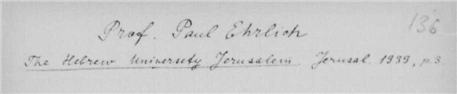 136
Prof. Paul Ehrlich
The Hebrew University Jerusalem. Jerusal. 1939, p.3